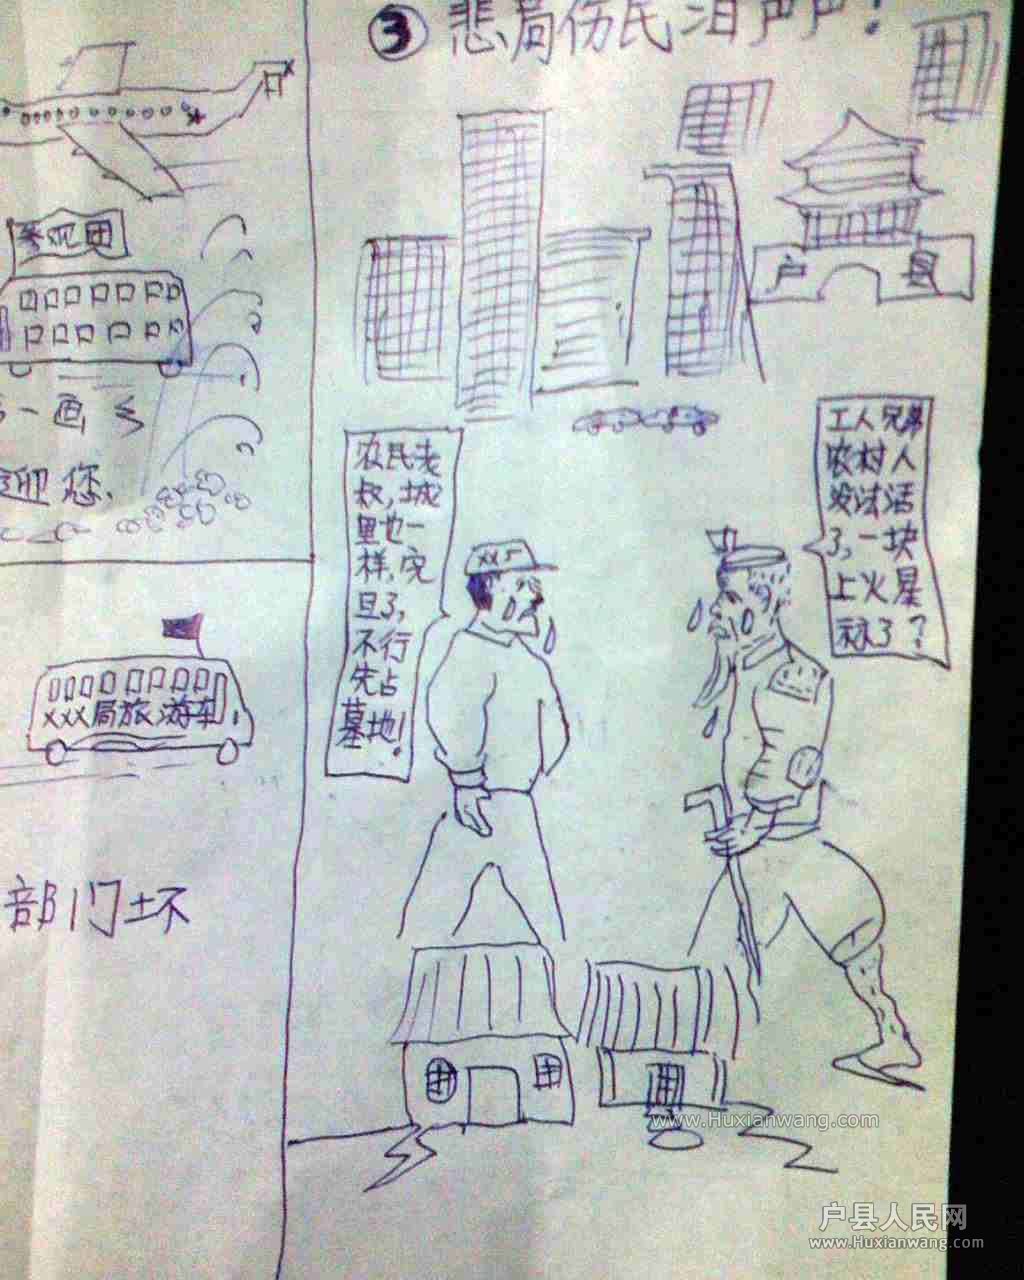 ③悲局伤民泪
户县
参观团
一画
迎您.
农民老
叔,城
里也一
样,完
旦了,
不行
先占
墓地!
XX厂
工人兄弟
农村人
没法活
了,一块
上火星
了?
XXX局旅游车
部门坏
www.Huxianwang.com
户县人民网
www.Huxianwang.com